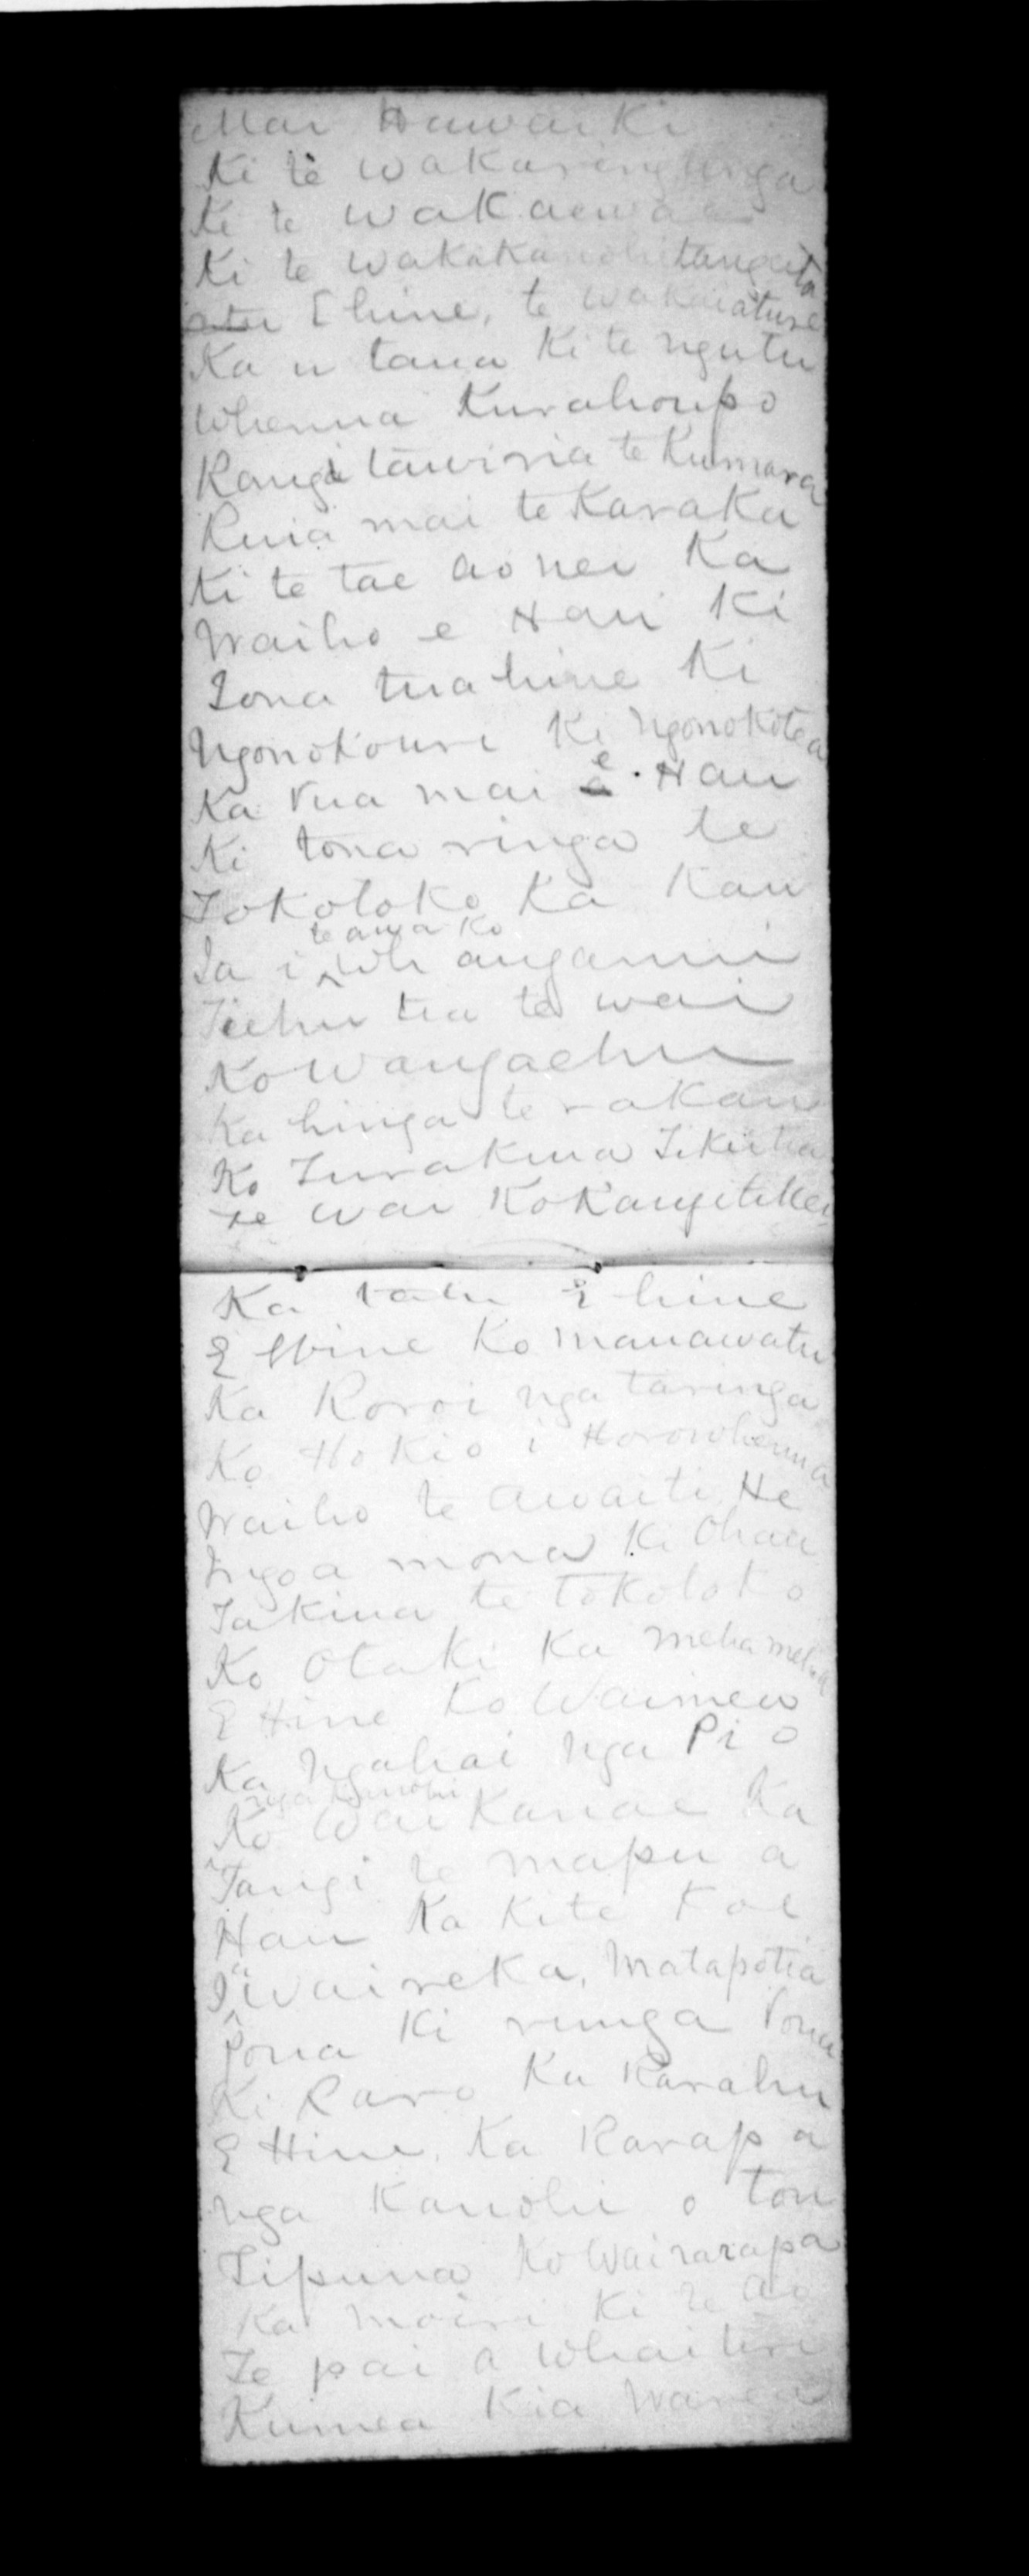 Mai Hawaiki
Ki te wakaringaringa
Ki te wakaewae
Ki te wakakanohitangata
atu E hine, te wakaiature
Ka u taua Ki te ngutu
Whenua Kurahoupo
Rangitawiria te Kumara
Ruia mai te Karaka
Ki te tae ao nei Ka
Waiho e Hau Ki
Tona tuahine Ki
Ngonokouri Ki Ngonokotea
Ka rua mai e Hau
Ki tona ringa te
Tokotoko Ka Kau
Ia i te awa Ko Whanganui
Tiehu tia te wai
Ko Wangaehu
Ka hinga te rakau
Ko Turakina Tikitia
te wai Ko Rangitikei
Ka tatu E hine
E Hine Ko Manawatu
Ka Roroi nga taringa
Ko Hokio i Horowhenua
Waiho te awaiti He
Ingoa mona Ki Ohau
Takina te tokotoko
Ko Otaki Ka mehameha
E Hine Ko Waimeo
Ka Ngahai nga Pi o
nga Kanohi
Ko Waikanae Ka
Tangi te mapu a
Hau Ka Kite Koe
I a Waireka, Matapotia
Poua Ki runga Poua
Ki Raro Ka Rarahu
E Hine, Ka Rarapa
nga Kanohi o tou
Tipuna Ko Wairarapa
Ka moiri Ki te ao
Te pai a Whaitiri
Kumea Kia Warea